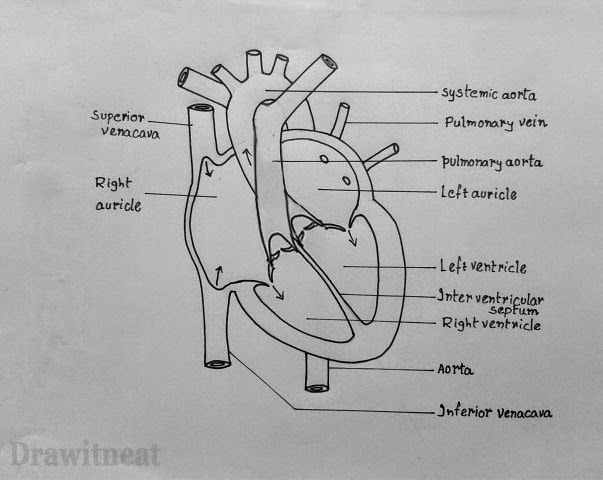 Superior
venacava
Right
auricle
systemic aorta
Pulmonary vein
pulmonary aorta
Left auricle
Left ventricle
Inter ventricular
septum
Right ventricle
Aorta
Inferior venacava
Drawitneat